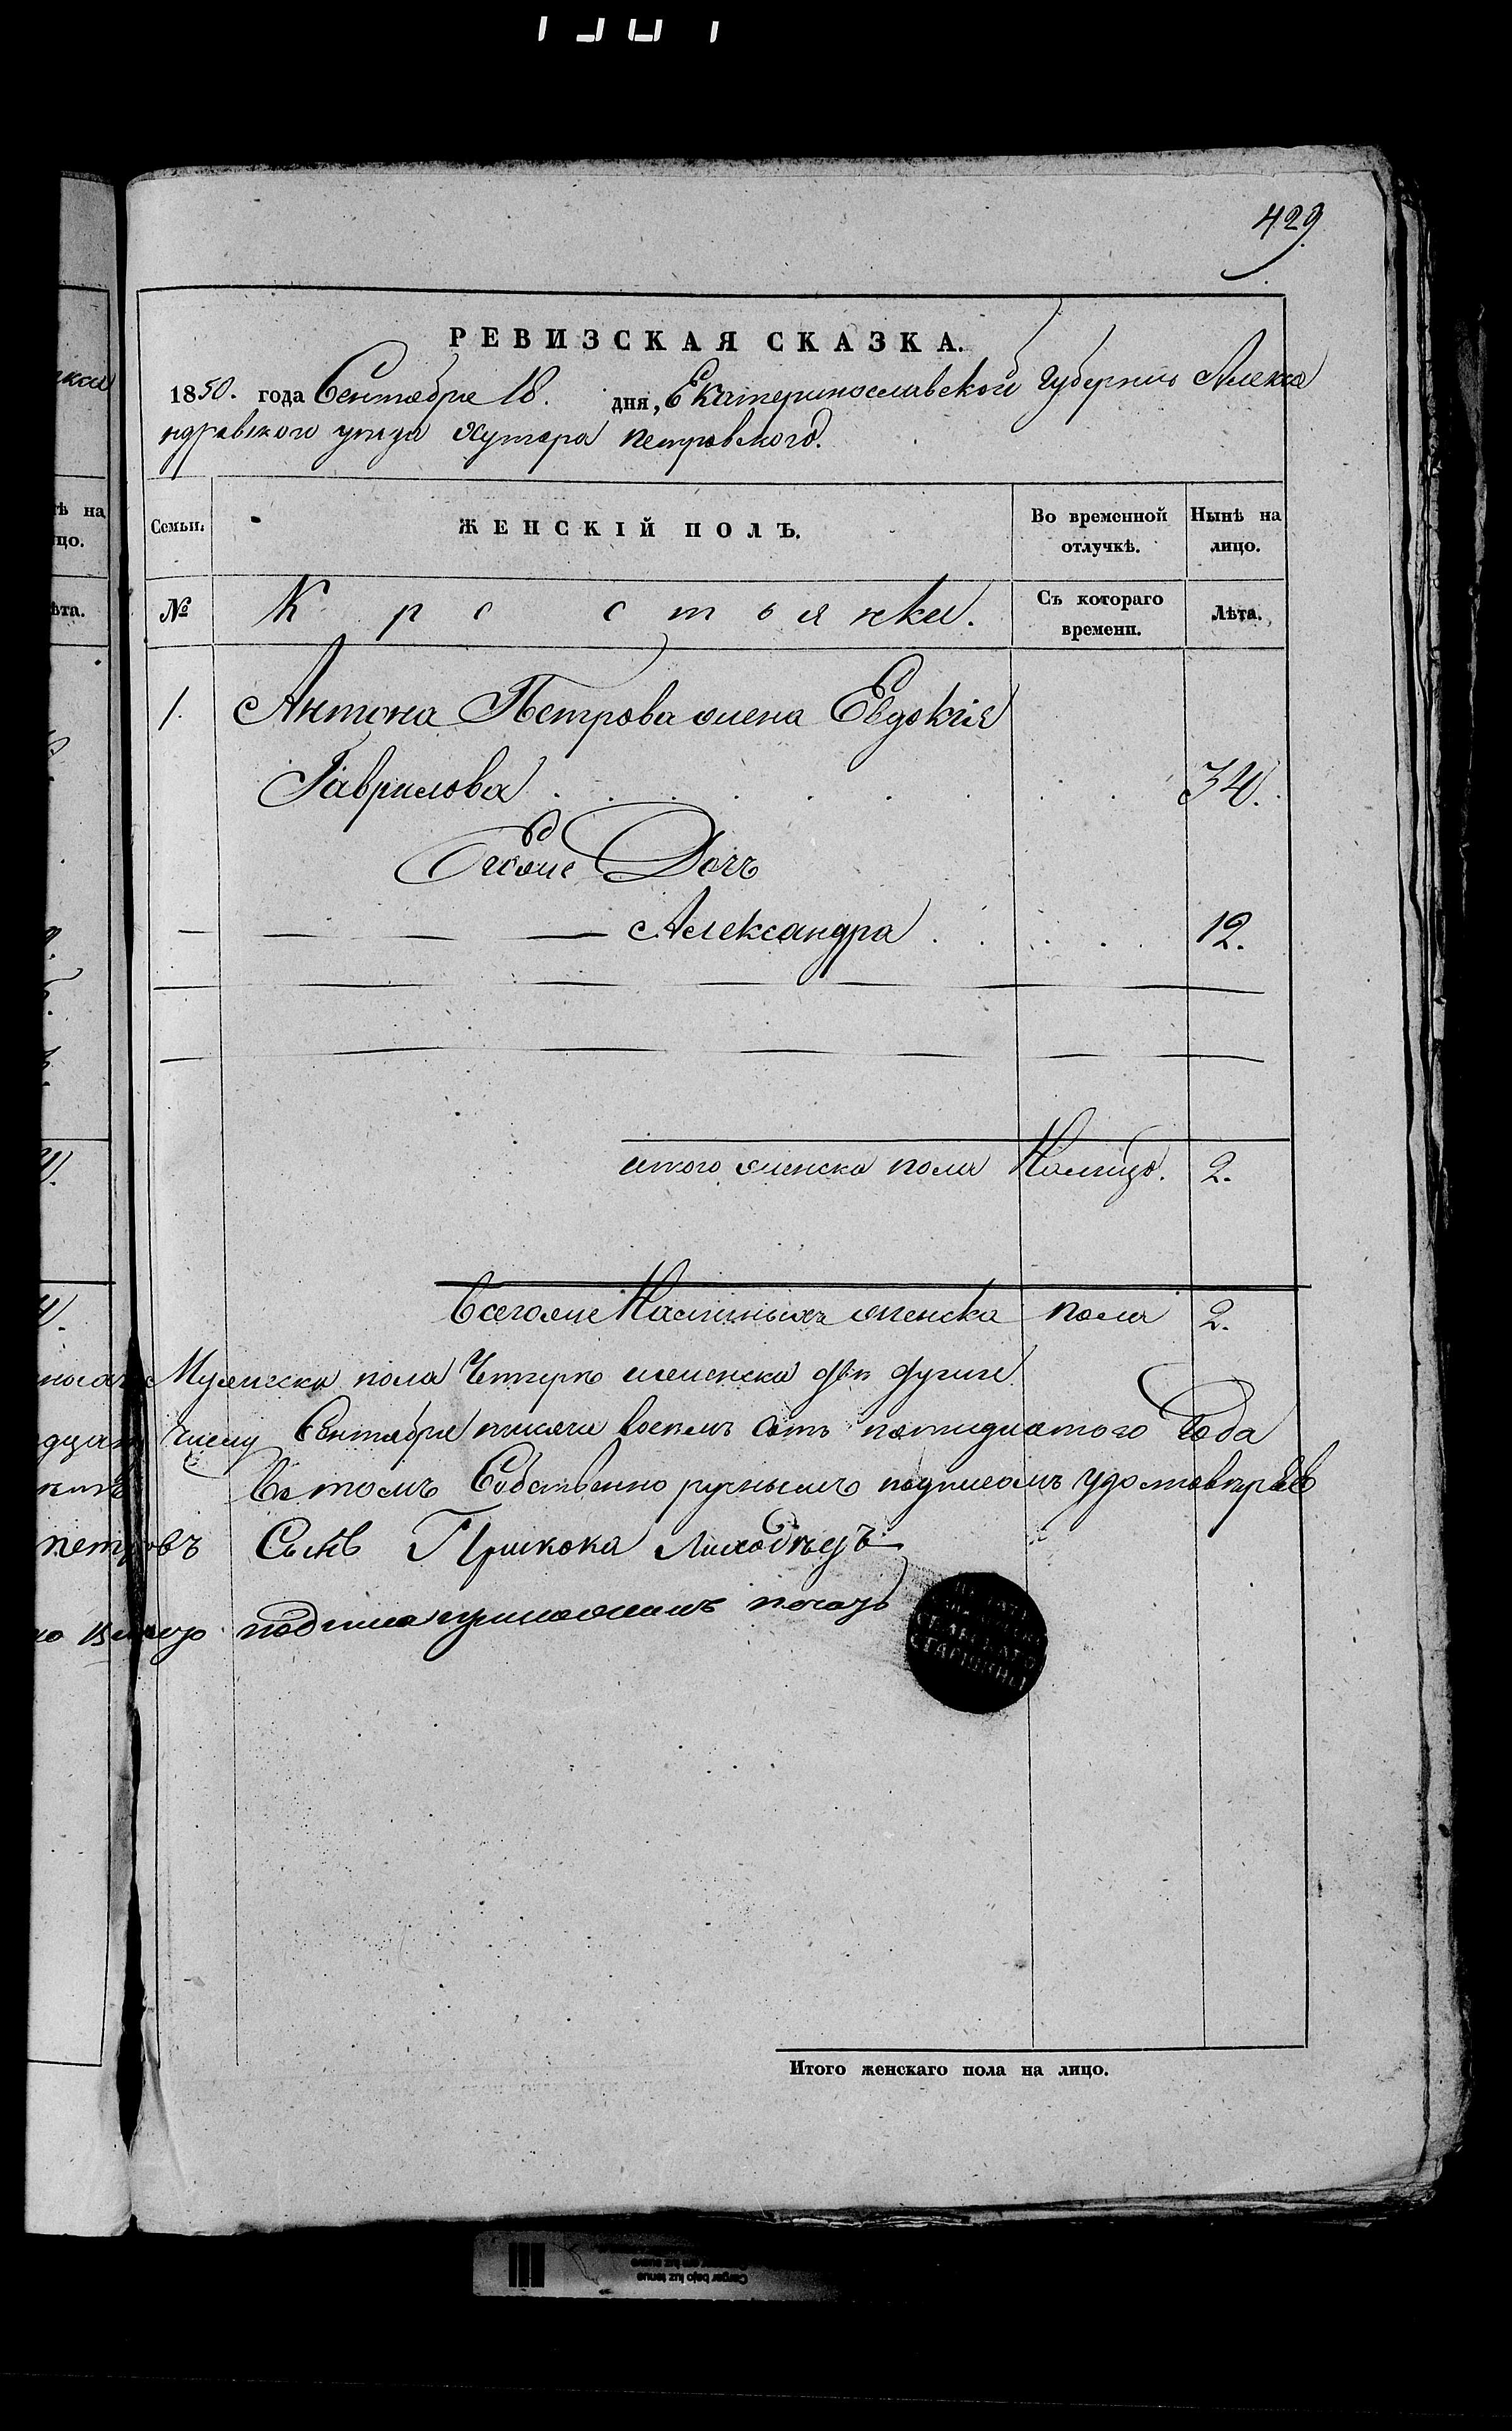 429
РЕВИЗСКАЯ СКАЗКА.
1850. года Сентября 18. дня, Екатеринославской Губернио Алекса
ндравского уѣзда Хутара Петровского.
Семьи. ЖЕНСКІЙ ПОЛЪ. Во временной отлучкѣ. Нынѣ на лицо.
№ Крестьянки. Съ котораго времени. Лѣта.
1. Антона Петрова жена Евдокия
Гаврилова 34.
Егоже Дочъ
Александра 12.
итого женска пола Налицо. 2.
Всегоже Наличныхъ женска пола 2.
Мужеска пола Четыре иженска двѣ души
числу Сентября тисяча восемъ сотъ пятидиатого Года
Въ томъ Собственно ручнымъ подписомъ удостовѣраю
петровъ Сынъ Прикока Лиходѣдъ
подписа приложилъ печать
СЕЛЬСКАГО
СТАРШИНЫ
Итого женскаго пола на лицо.